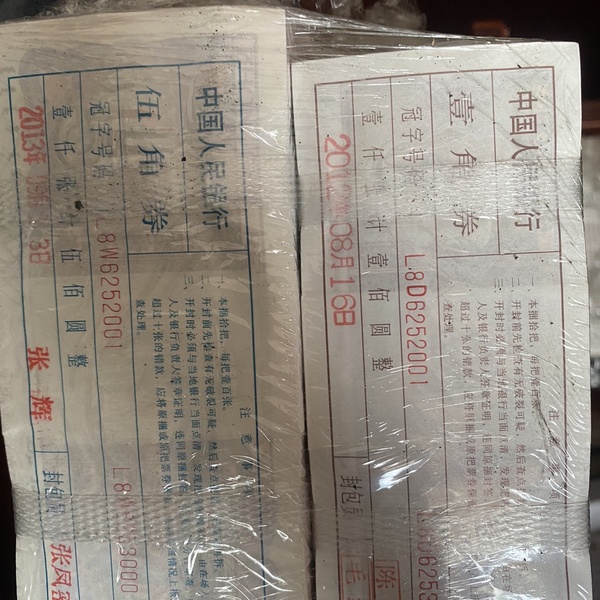 中国人民银行
伍角券
冠字号码
L8W6252001
壹仟张计伍佰圆整
2013年
3日
张辉
封包员
张凤
注意事
一、本捆拾把，每把壹百张。
二、开封前先检查有无破裂可疑，然后在点
三、开封时必须与当地银行当面点清，发现
人及银行负责人签章证明，连同原捆封签
超过十张的错款，应将原捆或原把票券
查处理。
中国人民银行
壹角券
冠字号
L8D6252001
壹仟张计壹佰圆整
08月16日
封包员
毛
陈
一、本捆拾把，每把壹百张。
二、开封前先检查有无破裂可疑，然后在点
三、开封时必须与当地银行当面点清，发现
人及银行负责人签章证明，连同原捆封签
超过十张的错款，应将原捆或原把票券保
查处理。